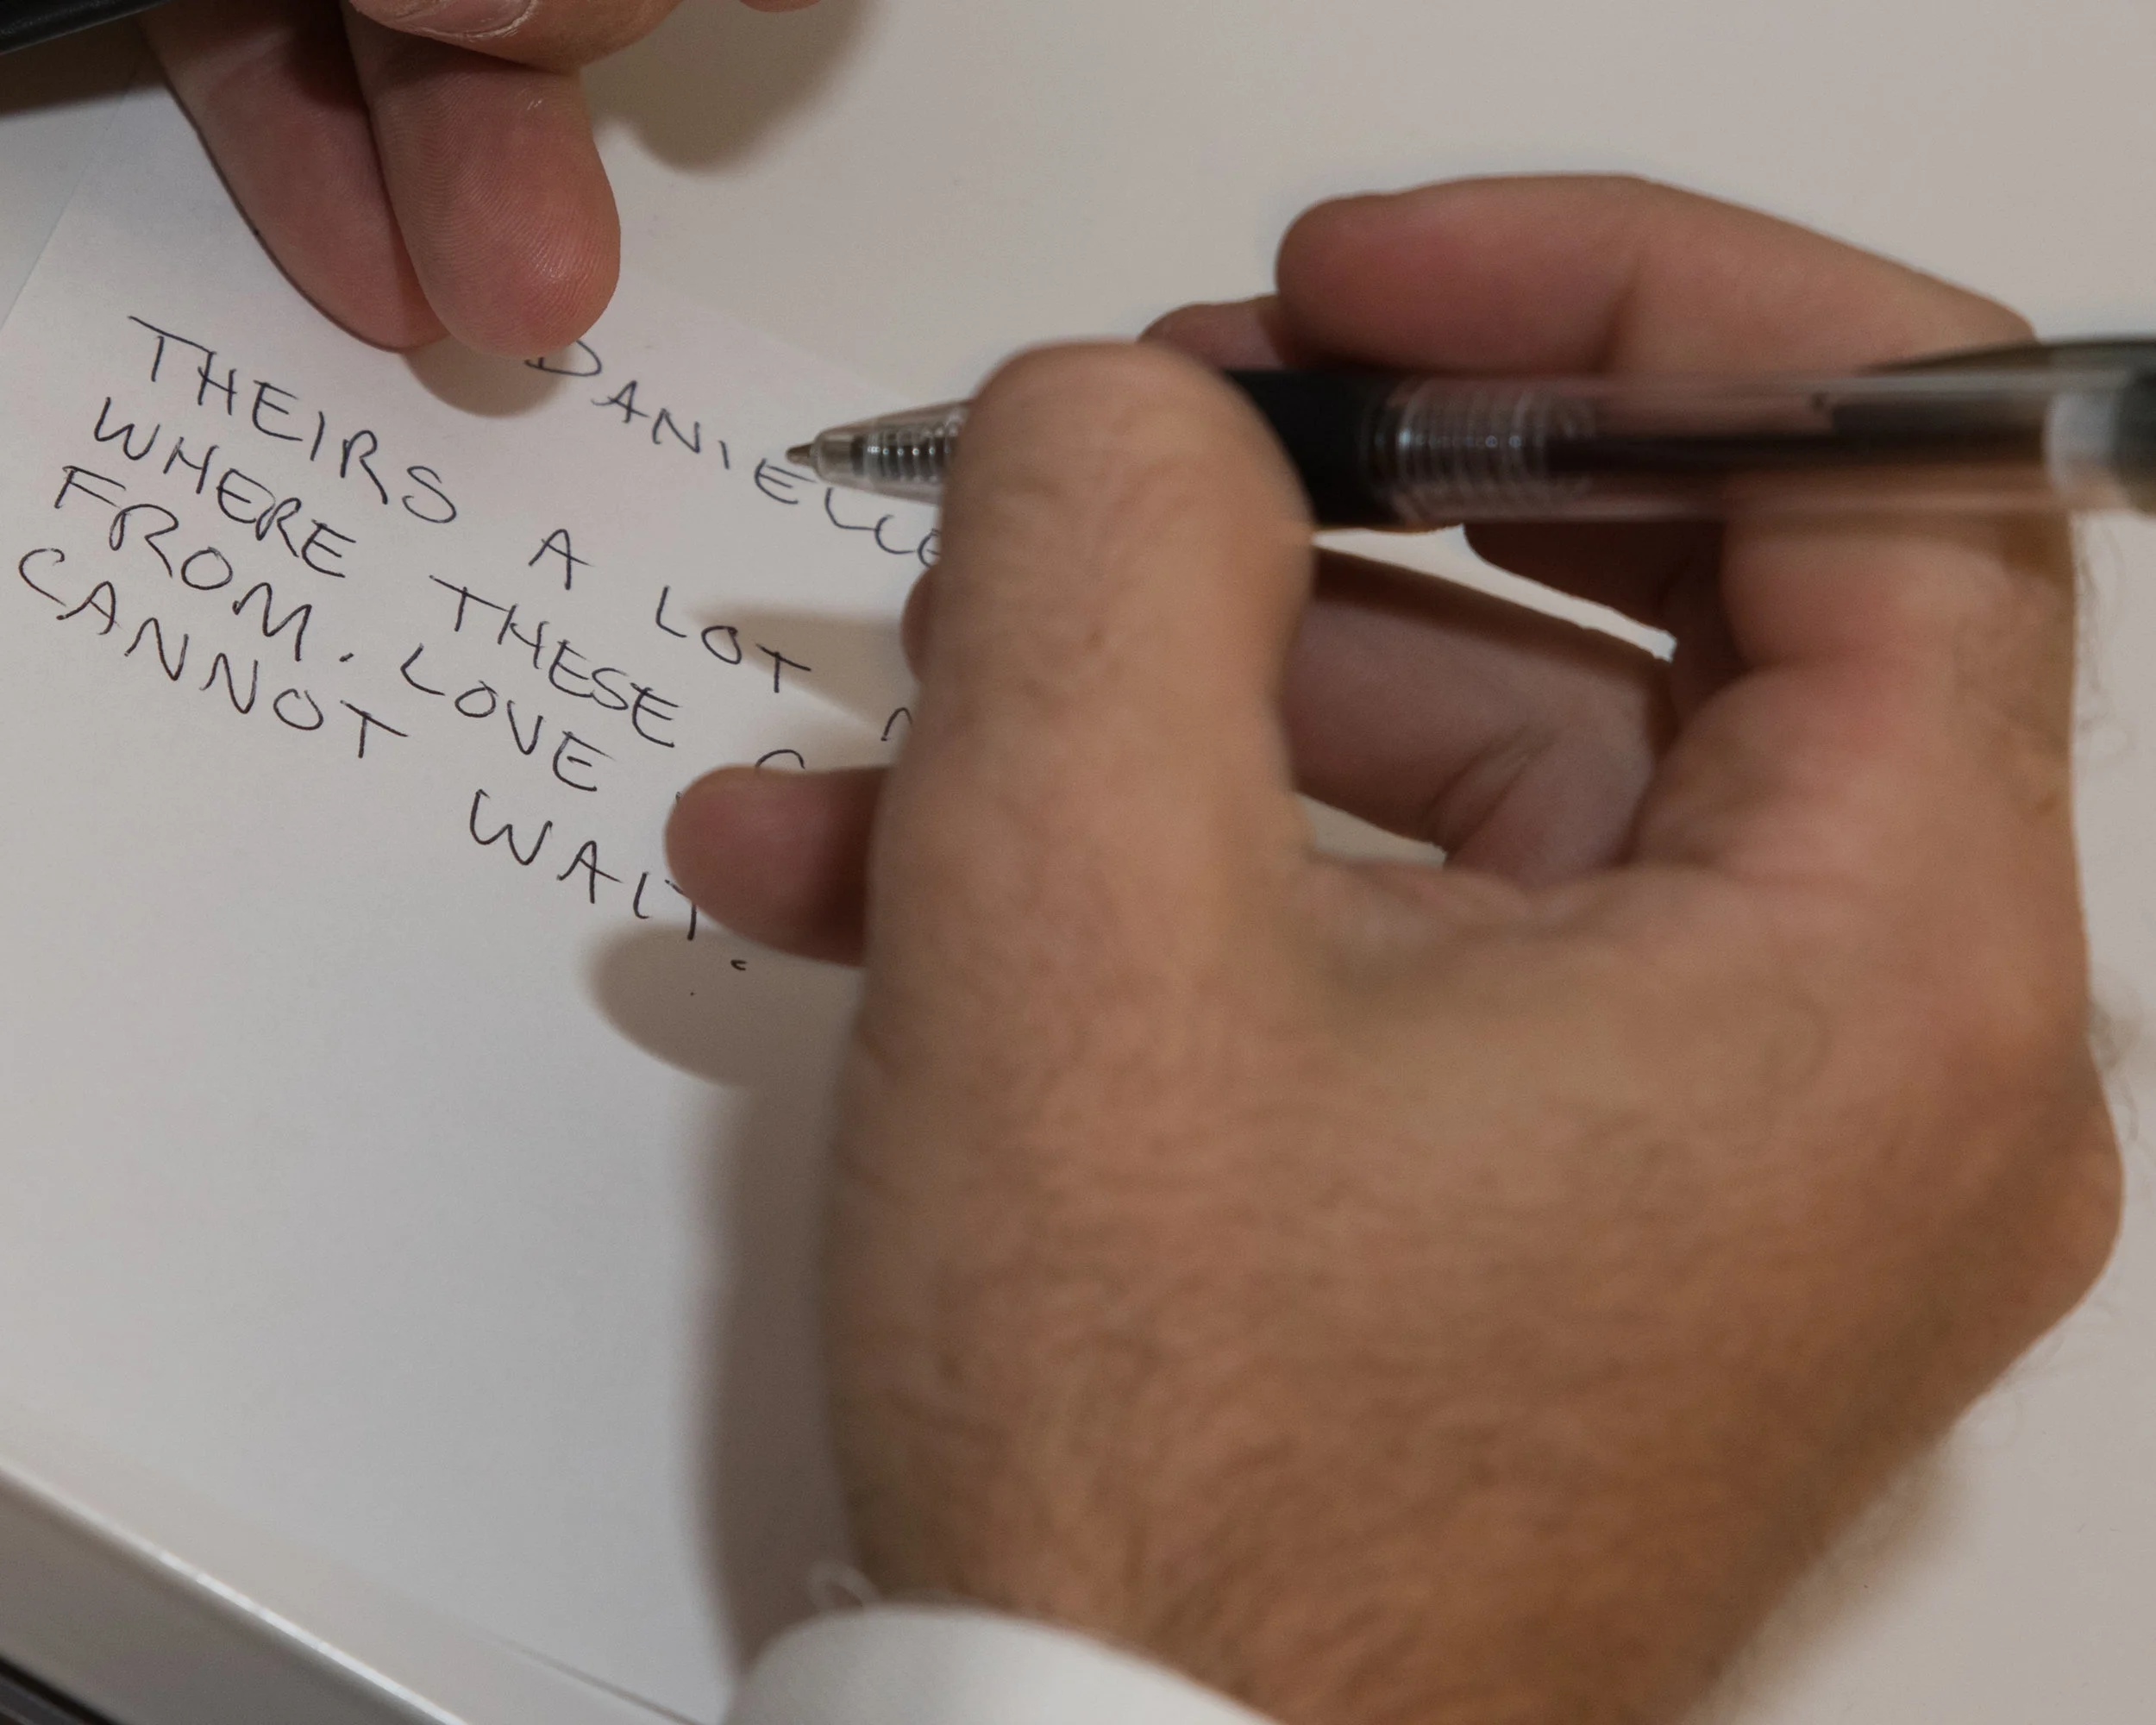 DANIELLE
THEIRS A LOT
WHERE THESE
FROM. LOVE
CANNOT WAIT.